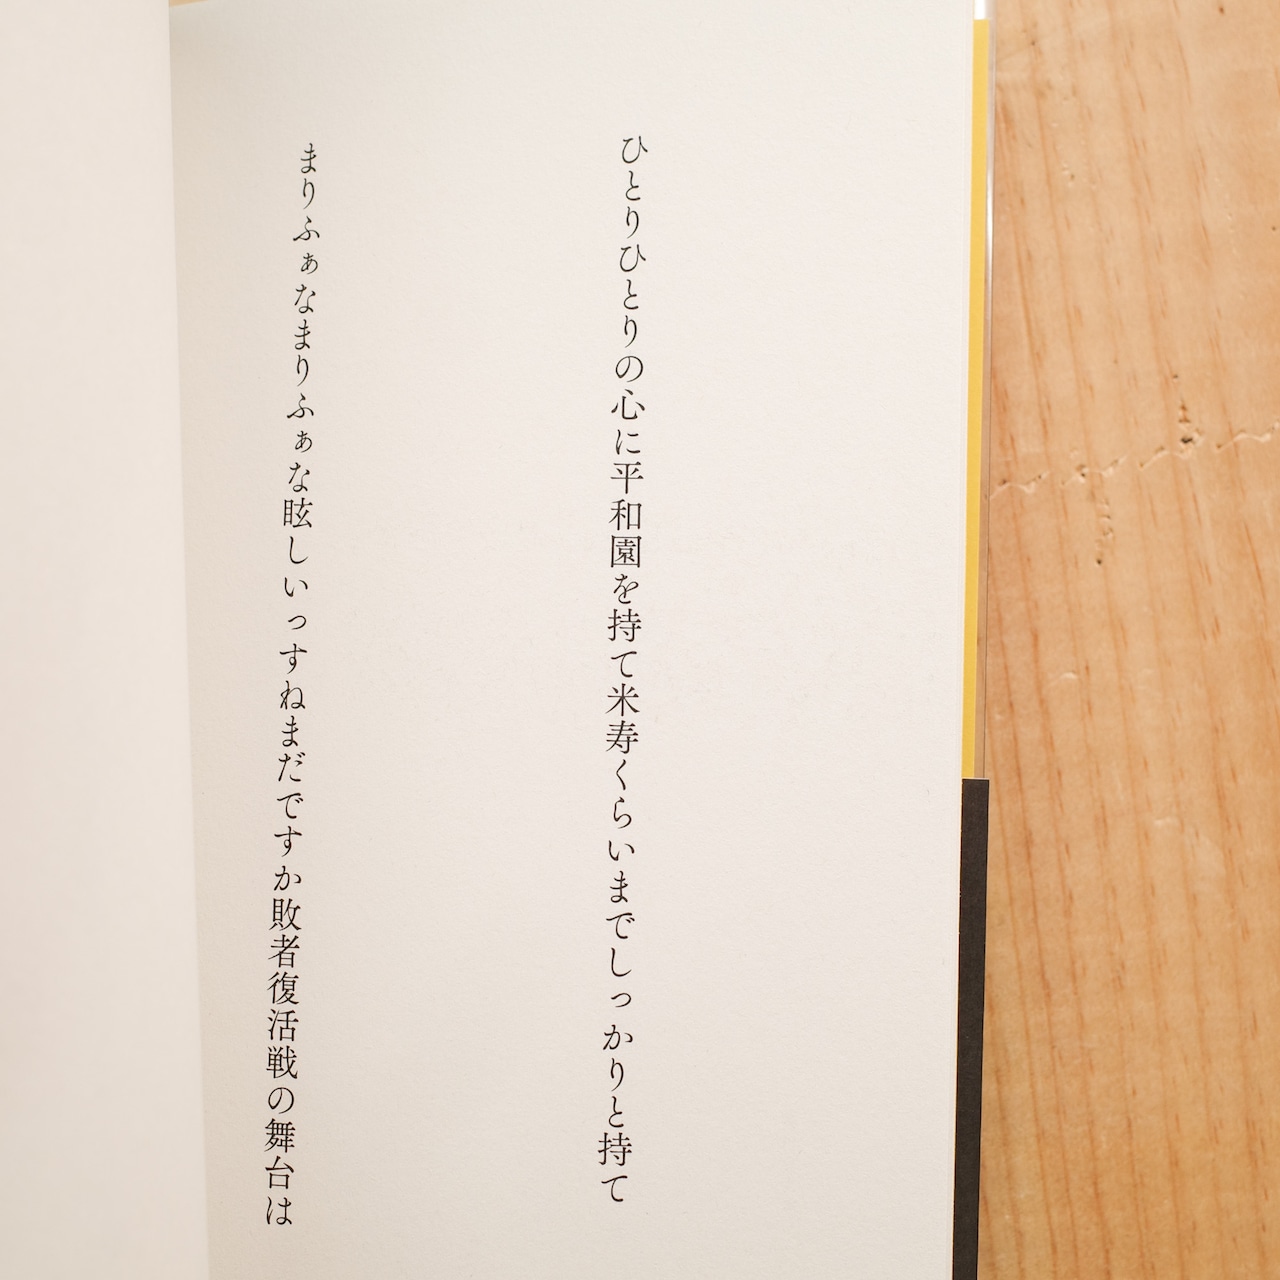 ひとりひとりの心に平和園を持て米寿くらいまでしっかりと持て
まりふぁなまりふぁな眩しいっすねまだですか敗者復活戦の舞台は